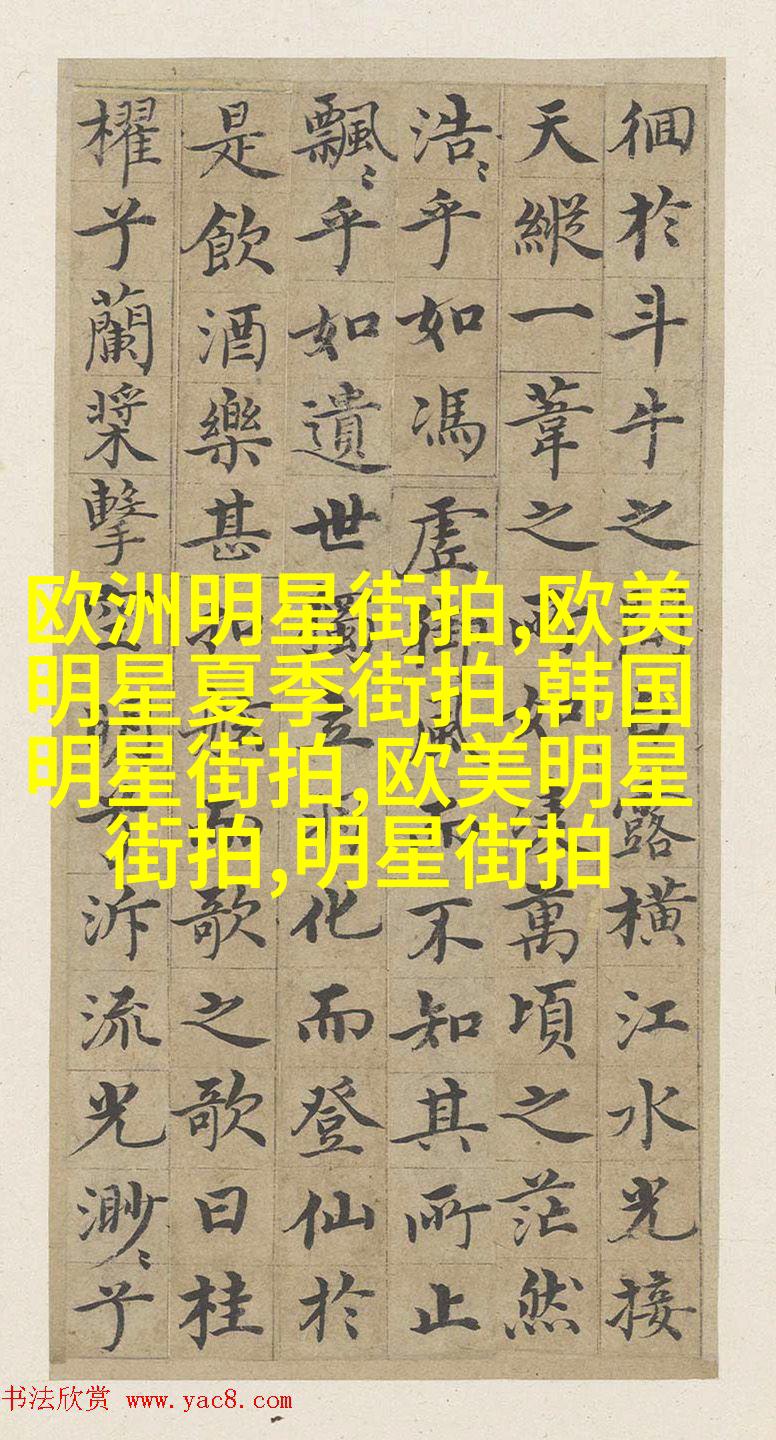 徊於斗牛之間白露橫江水光接
天縱一葦之所如凌萬頃之茫然
浩〻乎如馮虛御風而不知其所止
飄〻乎如遺世獨立羽化而登仙於
是飲酒樂甚扣舷而歌之歌曰桂
櫂兮蘭槳擊空明兮泝流光渺〻兮
欧洲明星街拍,欧美
明星夏季街拍,韩国
明星街拍,欧美明星
街拍,明星街拍
书法欣赏 www.yac8.com